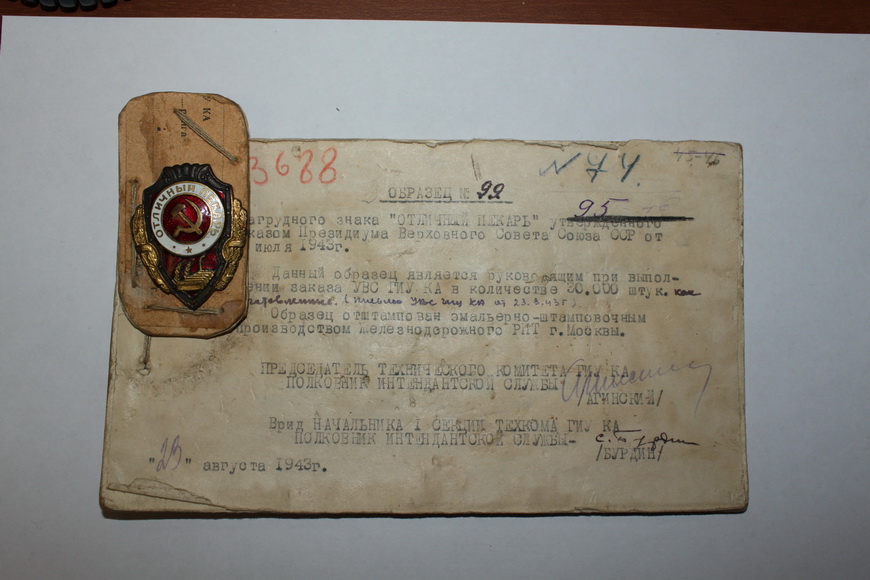 КА
3688
N 44.
ОБРАЗЕЦ № 99
95
агрудного знака "ОТЛИЧНЫЙ ПЕКАРЬ" утвержденного
казом Президиума Верховного Совета Союза ССР от
июля 1943г.
Данный образец является руководящим при выпол-
ении заказа УВС ГИУ КА в количестве 30.000 штук. как
(письмо УВС ГИУ КА от 23.8.43г)
Образец отштампован эмальерно-штамповочным
производством Железнодорожного РПТ г.Москвы.
ПРЕДСЕДАТЕЛЬ ТЕХНИЧЕСКОГО КОМИТЕТА ГИУ КА
ПОЛКОВНИК ИНТЕНДАНТСКОЙ СЛУЖБЫ
/АГИНСКИЙ/
Врид НАЧАЛЬНИКА I СЕКЦИИ ТЕХКОМА ГИУ КА
ПОЛКОВНИК ИНТЕНДАНТСКОЙ СЛУЖБЫ-
/БУРДИН/
"23" августа 1943г.
ОТЛИЧНЫЙ ПЕКАРЬ